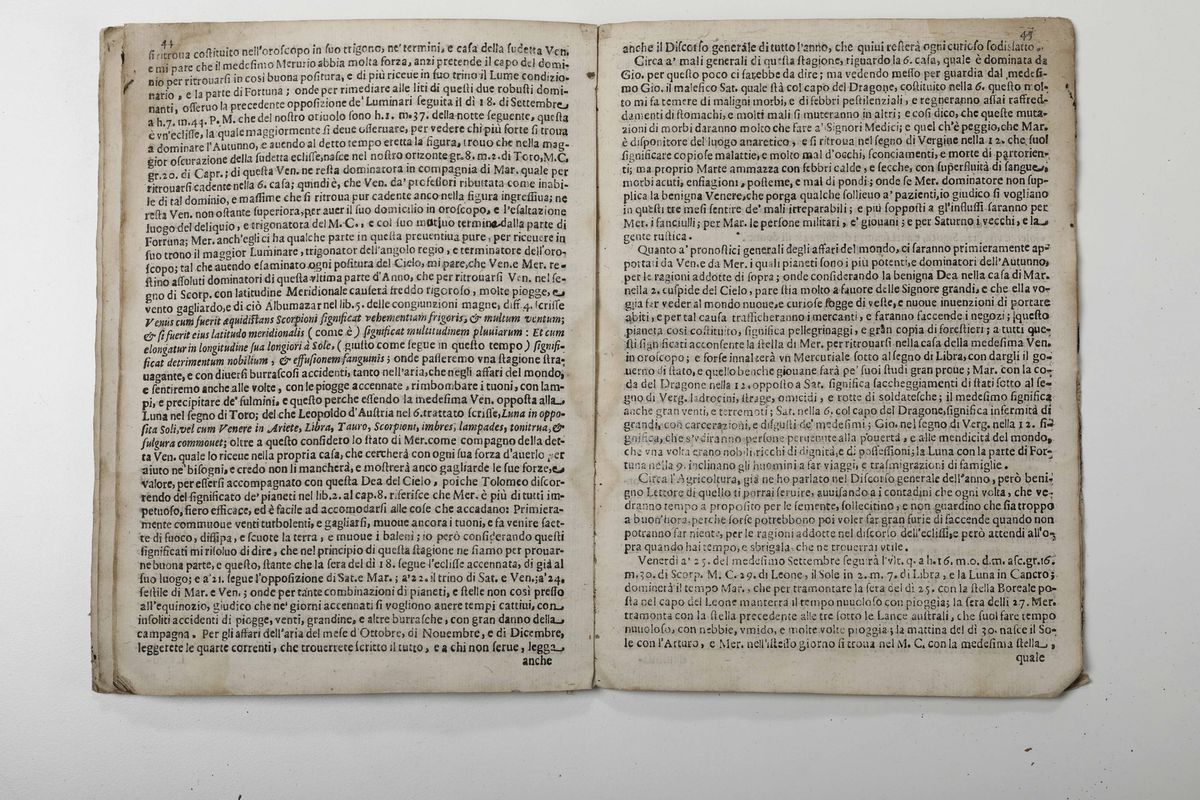 44
si ritroua costituito nell'oroscopo in suo trigono, ne' termini, e casa della sudetta Ven.
e mi pare che il medesimo Merurio abbia molta forza, anzi pretende il capo del domi-
nio per ritrouarsi in così buona positura, e di più riceue in suo trino il Lume condizio-
nario, e la parte di Fortuna; onde per rimediare alle liti di questi due robusti domi-
nanti, osseruo la precedente opposizione de' Luminari seguita il dì 18. di Settembre
a h.7. m.44. P. M. che del nostro oriuolo sono h.1. m.37. della notte seguente, questa
è vn'eclisse, la quale maggiormente si deue osseruare, per vedere chi più forte si troua
a dominare l'Autunno, e auendo al detto tempo eretta la figura, trouo che nella mag-
gior oscurazione della sudetta eclisse, nasce nel nostro orizonte gr.8. m.2. di Toro, M.C.
gr.20. di Capr.; di questa Ven. ne resta dominatora in compagnia di Mar. quale per
ritrouarsi cadente nella 6. casa; quindi è, che Ven. da' professori ributtata come inabi-
le di tal dominio, e massime che si ritroua pur cadente anco nella figura ingressiua; ne
resta Ven. non ostante superiora, per auer il suo domicilio in oroscopo, e l'esaltazione
luogo del deliquio, e trigonatora del M. C., e col suo mutuo termine dalla parte di
Fortuna; Mer. anch'egli ci ha qualche parte in questa preuentiua pure, per riceuere in
suo trono il maggior Luminare, trigonator dell'angolo regio, e terminatore dell'oro-
scopo; tal che auendo esaminato ogni positura del Cielo, mi pare, che Ven. e Mer. re-
stino assoluti dominatori di questa vltima parte d'Anno, che per ritrouarsi Ven. nel se-
gno di Scorp. con latitudine Meridionale causerà freddo rigoroso, molte piogge, e
vento gagliardo, e di ciò Albumazar nel lib.5. delle congiunzioni magne, diff 4. scrisse
Venus cum fuerit æquidistans Scorpioni significat vehementiam frigoris, & multum ventum;
& si fuerit eius latitudo meridionalis ( come è ) significat multitudinem pluuiarum : Et cum
elongatur in longitudine sua longiori à Sole, ( giusto come segue in questo tempo ) signifi-
ficat detrimentum nobilium, & effusionem sanguinis; onde passeremo vna stagione stra-
uagante, e con diuersi burrascosi accidenti, tanto nell'aria, che negli affari del mondo,
e sentiremo anche alle volte, con le piogge accennate, rimbombare i tuoni, con lam-
pi, e precipitare de' fulmini, e questo perche essendo la medesima Ven. opposta alla
Luna nel segno di Toro; del che Leopoldo d'Austria nel 6. trattato scrisse, Luna in oppo-
sita Soli, vel cum Venere in Ariete, Libra, Tauro, Scorpioni, imbres, lampades, tonitrua, &
fulgura commouet; oltre a questo considero lo stato di Mer. come compagno della det-
ta Ven. quale lo riceue nella propria casa, che cercherà con ogni sua forza d'auerlo per
aiuto ne' bisogni, e credo non li mancherà, e mostrerà anco gagliarde le sue forze, e
valore, per essersi accompagnato con questa Dea del Cielo, poiche Tolomeo discor-
rendo del significato de' pianeti nel lib.2. al cap.8. riferisce che Mer. è più di tutti im-
petuoso, fiero efficace, ed è facile ad accomodarsi alle cose che accadano: Primiera-
mente commuoue venti turbolenti, e gagliarsi, muoue ancora i tuoni, e fa venire saet-
te di fuoco, dissipa, e scuote la terra, e muoue i baleni; io però considerando questi
significati mi risoluo di dire, che nel principio di questa stagione ne siamo per prouar-
ne buona parte, e questo, stante che la sera del dì 18. segue l'eclisse accennata, di già al
suo luogo; e a'21. segue l'opposizione di Sat. e Mar.; a'22. il trino di Sat. e Ven.; a'24.
sestile di Mar. e Ven.; onde per tante combinazioni di pianeti, e stelle non così presso
all'equinozio, giudico che ne' giorni accennati si vogliono auere tempi cattiui, con
insoliti accidenti di piogge, venti, grandine, e altre burrasche, con gran danno della
campagna. Per gli affari dell'aria del mese d'Ottobre, di Nouembre, e di Dicembre,
leggerete le quarte correnti, che trouerrete scritto il tutto, e a chi non serue, legga
anche
45
anche il Discorso generale di tutto l'anno, che quiui resterà ogni curioso sodisfatto.
Circa a' mali generali di questa stagione, riguardo la 6. casa, quale è dominata da
Gio. per questo poco ci sarebbe da dire; ma vedendo messo per guardia dal medesi-
mo Gio. il malefico Sat. quale stà col capo del Dragone, costituito nella 6. questo mol-
to mi fa temere di maligni morbi, e di febbri pestilenziali, e regneranno assai raffred-
damenti di stomachi, e molti mali si muteranno in altri; e così dico, che queste muta-
zioni di morbi daranno molto che fare a' Signori Medici; e quel ch'è peggio, che Mar.
è dispositore del luogo anaretico, e si ritroua nel segno di Vergine nella 12. che suol
significare copiose malattie, e molto mal d'occhi, sconciamenti, e morte di partorien-
ti; ma proprio Marte ammazza con febbri calde, e secche, con superfluità di sangue,
morbi acuti, enfiagioni, posteme, e mal di pondi; onde se Mer. dominatore non sup-
plica la benigna Venere, che porga qualche sollieuo a' pazienti, io giudico si vogliano
in questi tre mesi sentire de' mali irreparabili; e più sopposti a gl'influssi saranno per
Mer. i fanciulli; per Mar. le persone militari, e' giouani; e per Saturno i vecchi, e la
gente rustica.
Quanto a' pronostici generali degli affari del mondo, ci saranno primieramente ap-
portati da Ven. e da Mer. i quali pianeti sono i più potenti, e dominatori dell'Autunno,
per le ragioni addotte di sopra; onde considerando la benigna Dea nella casa di Mar.
nella 2. cuspide del Cielo, pare stia molto a fauore delle Signore grandi, e che ella vo-
glia far veder al mondo nuoue, e curiose fogge di veste, e nuoue inuenzioni di portare
abiti, e per tal causa trafficheranno i mercanti, e faranno faccende i negozi; questo
pianeta così costituito, significa pellegrinaggi, e gran copia di forestieri; a tutti que-
sti significati acconsente la stella di Mer. per ritrouarsi nella casa della medesima Ven.
in oroscopo; e forse innalzerà vn Mercuriale sotto al segno di Libra, con dargli il go-
uerno di stato, e quello benche giouane farà pe' suoi studi gran proue; Mar. con la co-
da del Dragone nella 12. opposto a Sat. significa saccheggiamenti di stati sotto al se-
gno di Verg. ladrocini, strage, omicidi, e rotte di soldatesche; il medesimo significa
anche gran venti, e terremoti; Sat. nella 6. col capo del Dragone, significa infermità di
grandi, con carcerazioni, e disgusti de' medesimi; Gio. nel segno di Verg. nella 12. si-
gnifica, che s'vdiranno persone peruenute alla pouertà, e alle mendicità del mondo,
che vna volta erano nobili ricchi di dignità, e di possessioni; la Luna con la parte di For-
tuna nella 9. inclinano gli huomini a far viaggi, e trasmigrazioni di famiglie.
Circa l'Agricoltura, già ne ho parlato nel Discorso generale dell'anno, però beni-
gno Lettore di quello ti potrai seruire, auuisando a i contadini che ogni volta, che ve-
dranno tempo a proposito per le semente, sollecitino, e non guardino che sia troppo
a buon'hora, perche forse potrebbono poi voler far gran furie di faccende quando non
potranno far niente, per le ragioni addotte nel discorso dell'eclissi, e però attendi all'o-
pra quando hai tempo, e sbrigala che ne trouerrai vtile.
Venerdì a' 25. del medesimo Settembre seguirà l'vlt. q. a h.16. m.0. d.m. asc. gr.16.
m.30. di Scorp. M. C. 29. di Leone, il Sole in 2. m. 7. di Libra, e la Luna in Cancro;
dominerà il tempo Mar., che per tramontare la sera del dì 25. con la stella Boreale po-
sta nel capo del Leone manterrà il tempo nuuoloso con pioggia; la sera delli 27. Mer.
tramonta con la stella precedente alle tre sotto le Lance australi, che suol fare tempo
nuuoloso, con nebbie, vmido, e molte volte pioggia; la mattina del dì 30. nasce il So-
le con l'Arturo, e Mer. nell'istesso giorno si troua nel M. C. con la medesima stella,
quale